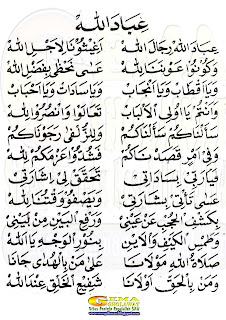 عِبَادَ اللهْ
عِبَادَ اللهْ رِجَالَ اللهْ اَغِيْثُوْنَا لِأَجْلِ اللهْ
وَكُوْنُوْا عَوْنَنَا لِلّٰهْ عَسَى نَحْظَى بِفَضْلِ اللهْ
وَيَا اَقْطَابْ وَيَا اَنْجَابْ وَيَا سَادَاتْ وَيَا اَحْبَابْ
وَاَنْتُمْ يَا اُولِى الْأَلْبَابْ تَعَالَوْا وَانْصُرُوْا لِلّٰهْ
سَأَلْنَاكُمْ سَأَلْنَاكُمْ وَلِلزُّلْفَى رَجَوْنَاكُمْ
وَفِى اَمْرٍ قَصَدْنَاكُمْ فَشُدُّوْا عَزْمَكُمْ لِلّٰهْ
فَيَارَبِّى بِسَادَاتِى تَحَقَّقْ لِى اِشَارَاتِى
عَسَى تَأْتِى بِشَارَاتِى وَيَصْفُوْ وَقْتُنَا لِلّٰهْ
بِكَشْفِ الْحُجْبِ عَنْ عَيْنِى وَرَفْعِ الْبَيْنِ مِنْ بَيْنِى
وَطَمْسِ الْكَيْفِ وَالْأَيْنِ بِنُوْرِ الْوَجْهِ يَا اَللهْ
صَلَاةُ اللهْ مَوْلَانَا عَلَى مَنْ بِالْهُدَى جَانَا
وَمَنْ بِالْحَقِّ اَوْلَانَا شَفِيْعِ الْخَلْقِ عِنْدَ اللهْ
GEMA
SHOLAWAT